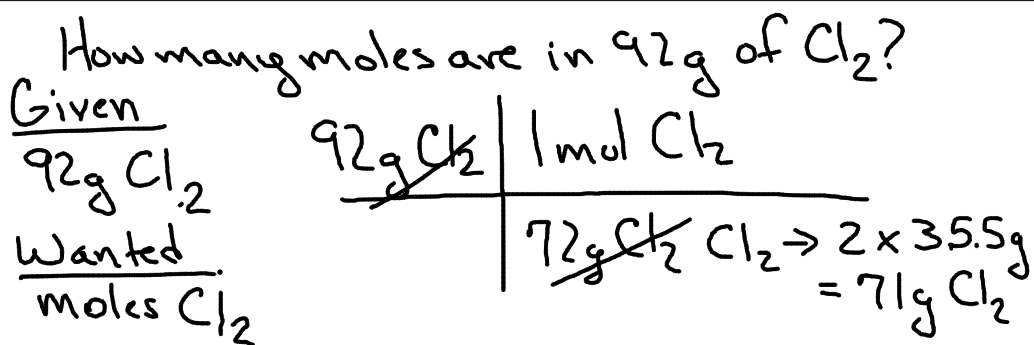 How many moles are in 92g of Cl₂?
Given
92g Cl₂
Wanted
moles Cl₂
92g Cl₂ | 1 mol Cl₂
72g Cl₂ Cl₂ → 2 x 35.5g
= 71g Cl₂